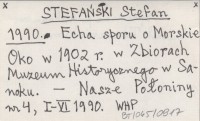 STEFAŃSKI Stefan
1990. Echa sporu o Morskie
Oko w 1902 r. w Zbiorach
Muzeum Historycznego w Sa-
noku. — Nasze Połoniny
nr 4, I-VI 1990. WHP